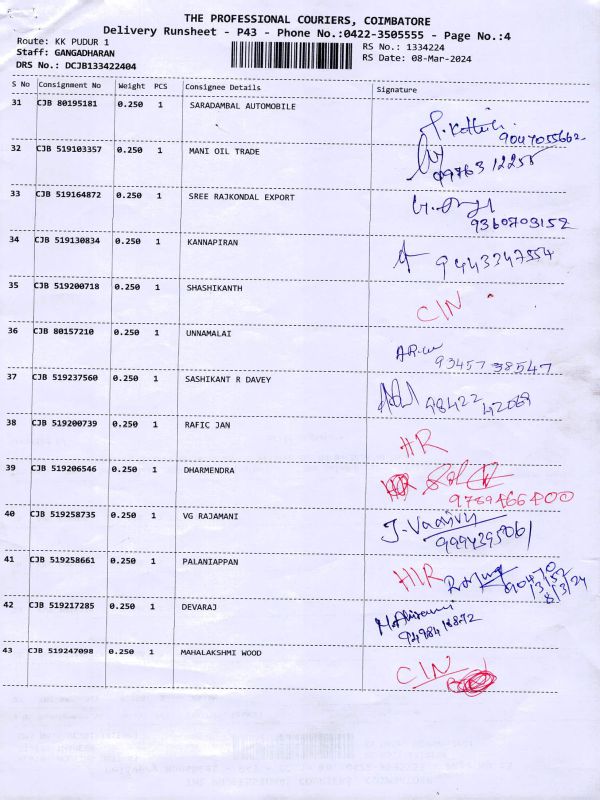 THE PROFESSIONAL COURIERS, COIMBATORE
Delivery Runsheet - P43 - Phone No.:0422-3505555 - Page No.:4
Route: KK PUDUR 1
RS No.: 1334224
Staff: GANGADHARAN
RS Date: 08-Mar-2024
DRS No.: DCJB133422404
S No Consignment No Weight PCS Consignee Details Signature
31 CJB 80195181 0.250 1 SARADAMBAL AUTOMOBILE
9047055662
32 CJB 519103357 0.250 1 MANI OIL TRADE
33 CJB 519164872 0.250 1 SREE RAJKONDAL EXPORT
9360703152
34 CJB 519130834 0.250 1 KANNAPIRAN 9443347554
35 CJB 519200718 0.250 1 SHASHIKANTH
CIN
36 CJB 80157210 0.250 1 UNNAMALAI
9345738547
37 CJB 519237560 0.250 1 SASHIKANT R DAVEY
98422 42069
38 CJB 519200739 0.250 1 RAFIC JAN
HR
39 CJB 519206546 0.250 1 DHARMENDRA
9789466400
40 CJB 519258735 0.250 1 VG RAJAMANI
9994395061
41 CJB 519258661 0.250 1 PALANIAPPAN
8/3/24
42 CJB 519217285 0.250 1 DEVARAJ
43 CJB 519247098 0.250 1 MAHALAKSHMI WOOD
CIN